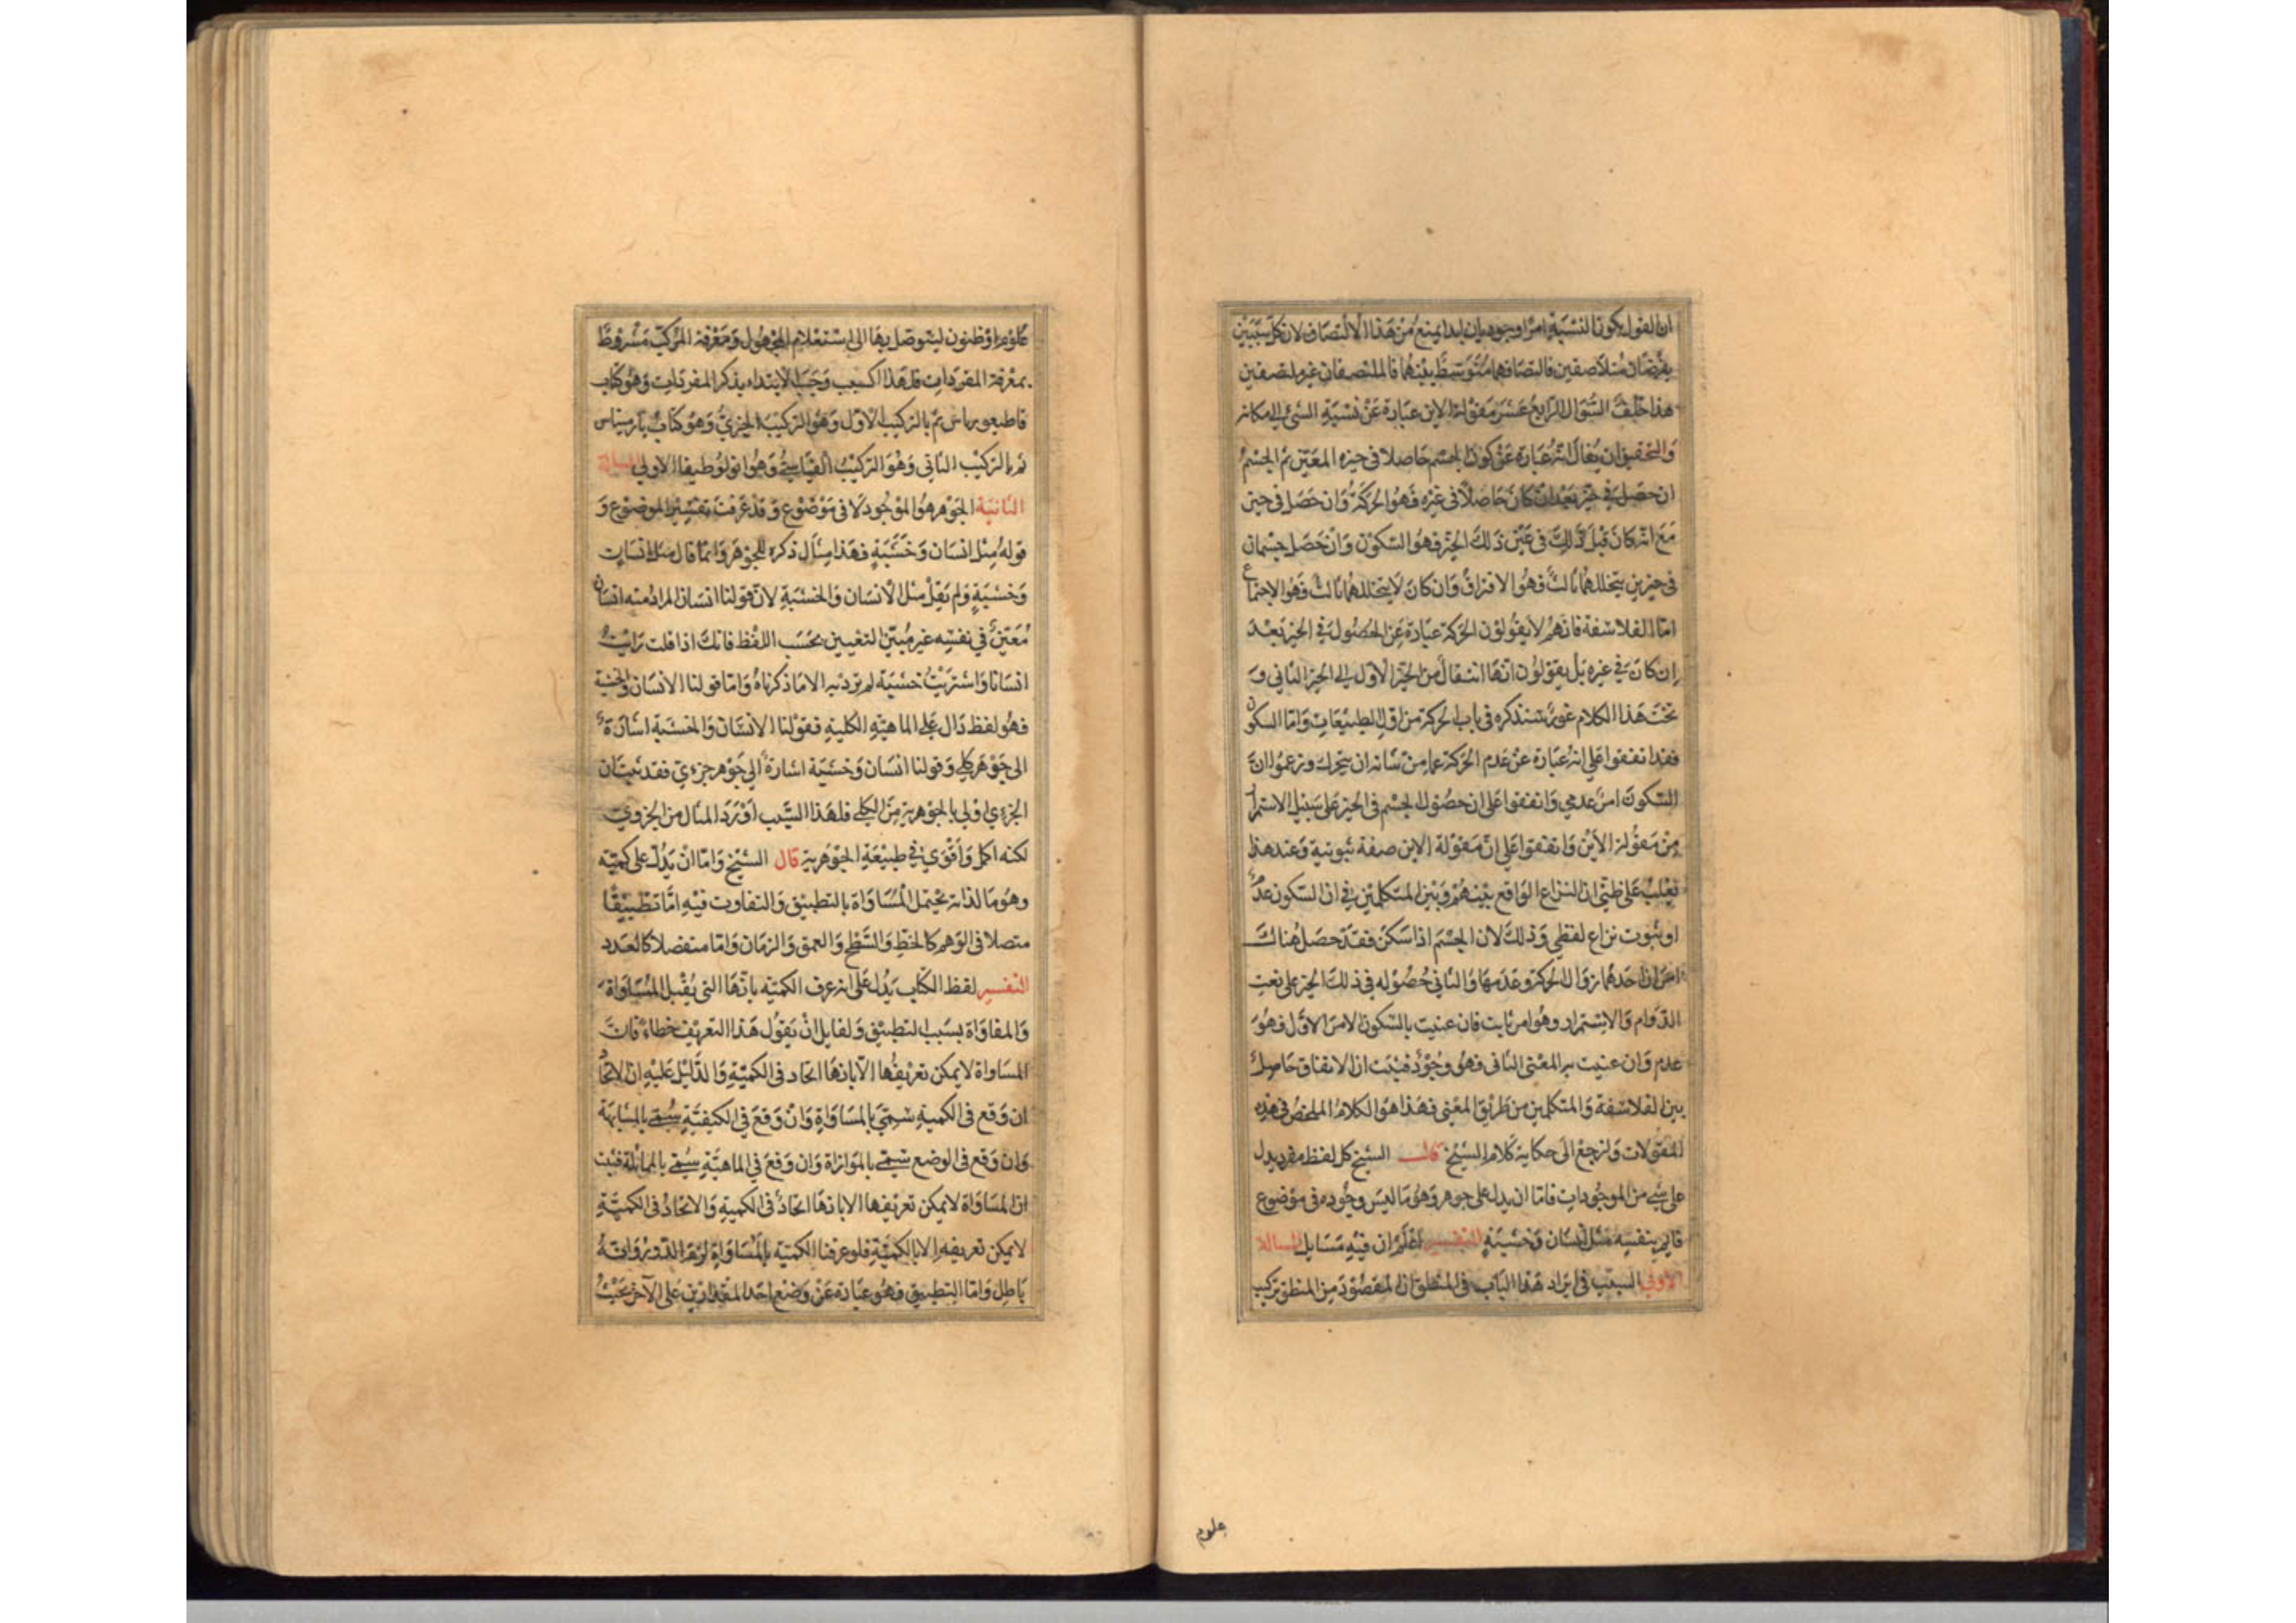 ان القول بكون النسبة امرا وجوديا ابدا يمنع من هذا الالتصاف لان كل شيئين
يفرضان متلاصقين فالتصافهما متوسط بينهما فالملتصفان غير ملتصفين
هذا خلف السؤال الرابع عشر مقولة الاين عبارة عن نسبة الشئ الى مكانه
والتحقيق ان يقال انه عبارة عن كون الجسم حاصلا في حيزه المعين ثم الجسم
ان حصل في حيز بعد ان كان حاصلا في غيره فهو الحركة وان حصل في حيز
مع انه كان قبل ذلك في عين ذلك الحيز فهو السكون وان حصل جسمان
في حيزين يتخللهما ثالث فهو الافتراق وان كان لا يتخللهما ثالث فهو الاجتماع
اما الفلاسفة فانهم لا يقولون الحركة عبارة عن الحصول في الحيز بعد
ان كان في غيره بل يقولون انها انتقال من الحيز الاول الى الحيز الثاني و
تحت هذا الكلام غور سنذكره في باب الحركة من اول الطبيعيات واما السكون
فقد اتفقوا على انه عبارة عن عدم الحركة عما من شانه ان يتحرك وزعموا ان
السكون امر عدمي واتفقوا على ان حصول الجسم في الحيز على سبيل الاستمرار
من مقولة الاين واتفقوا على ان مقولة الاين صفة ثبوتية وعند هذا
يغلب على ظني ان النزاع الواقع بينهم وبين المتكلمين في ان السكون عدم
او ثبوت نزاع لفظي وذلك لان الجسم اذا سكن فقد حصل هناك
امران احدهما زوال الحركة وعدمها والثاني حصوله في ذلك الحيز على نعت
الدوام والاستمرار وهو امر ثابت فان عنيت بالسكون الامر الاول فهو
عدم وان عنيت به المعنى الثاني فهو وجود فثبت ان الاتفاق حاصل
بين الفلاسفة والمتكلمين من طريق المعنى فهذا هو الكلام الملخص في هذه
المقولات ولنرجع الى حكاية كلام الشيخ قال الشيخ كل لفظ مفرد يدل
على شئ من الموجودات فاما ان يدل على جوهر وهو ما ليس وجوده في موضوع
قايم بنفسه مثل انسان وخشبة التفسير اعلم ان فيه مسايل المسالة
الاولى السبب في ايراد هذا الباب في المنطق ان المقصود من المنطق تركيب
علوم
علوم او ظنون ليتوصل بها الى استعلام المجهول ومعرفة المركب مشروط
بمعرفة المفردات فلهذا السبب وجب الابتداء بذكر المفردات وهو كتاب
قاطيغورياس ثم بالتركيب الاول وهو التركيب الخبري وهو كتاب بارميناس
ثم بالتركيب الثاني وهو التركيب القياسي وهو انولوطيقا الاولى المسالة
الثانية الجوهر هو الموجود لا في موضوع وقد عرفت تفسير الموضوع و
قوله مثل انسان وخشبة فهذا مثال ذكره للجوهر وانما قال مثل انسان
وخشبة ولم يقل مثل الانسان والخشبة لان قولنا انسان المراد منه انسان
معين في نفسه غير مبين التعيين بحسب اللفظ فانك اذا قلت رايت
انسانا واشتريت خشبة لم ترد به الا ما ذكرناه واما قولنا الانسان والخشبة
فهو لفظ دال على الماهية الكلية فقولنا الانسان والخشبة اشارة
الى جوهر كلي وقولنا انسان وخشبة اشارة الى جوهر جزءي فقد ثبت ان
الجزءي اولى بالجوهرية من الكلي فلهذا السبب اورد المثال من الجزوي
لكنه اكمل واقوى في طبيعة الجوهرية قال الشيخ واما ان يدل على كمية
وهو ما لذاته يحتمل المساواة بالتطبيق والتفاوت فيه اما تطبيقا
متصلا في الوهم كالخط والسطح والعمق والزمان واما منفصلا كالعدد
التفسير لفظ الكتاب يدل على انه عرف الكمية بانها التي يقبل المساواة
والمفاواة بسبب التطبيق ولقايل ان يقول هذا التعريف خطاء فان
المساواة لا يمكن تعريفها الا بانها اتحاد في الكمية والدليل عليه ان الاتحاد
ان وقع في الكمية سمي بالمساواة وان وقع في الكيفية سمي بالمشابهة
وان وقع في الوضع سمي بالموازاة وان وقع في الماهية سمي بالمماثلة فثبت
ان المساواة لا يمكن تعريفها الا بانها اتحاد في الكمية والاتحاد في الكمية
لا يمكن تعريفه الا بالكمية فلو عرفنا الكمية بالمساواة لزم الدور وانه
باطل واما التطبيق فهو عبارة عن وضع احد المقدارين على الآخر بحيث